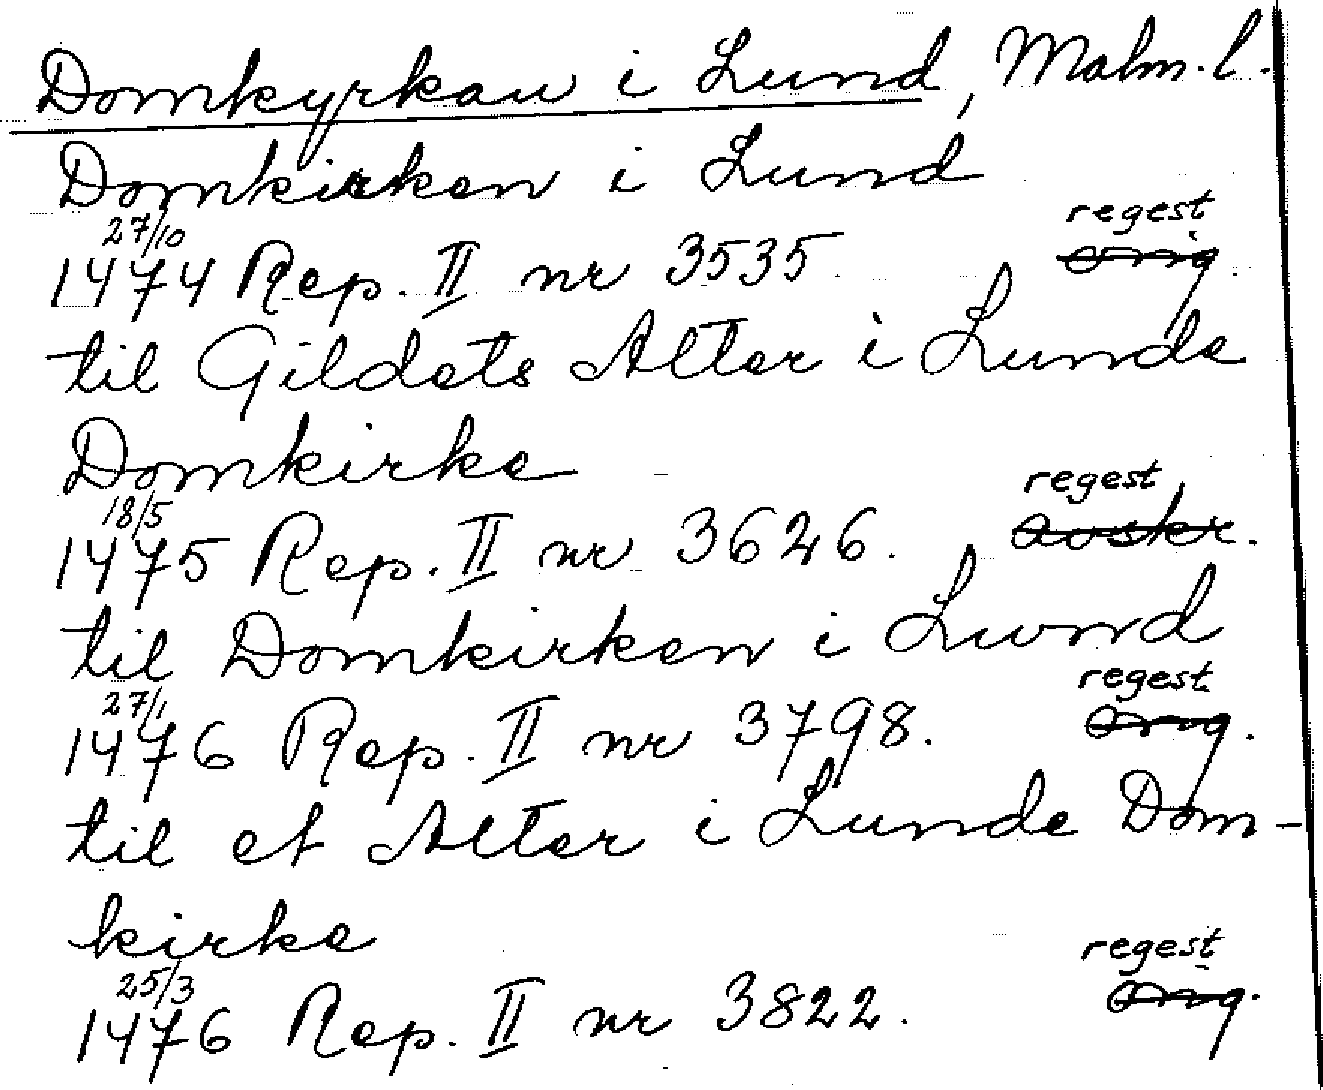 Domkyrkan i Lund, Malm.l.
Domkirken i Lund
27/10 regest
1474 Rep. II nr 3535 orig.
til Gildets Alter i Lunde
Domkirke
18/5 regest
1475 Rep. II nr 3626. avskr.
til Domkirken i Lund
27/1 regest
1476 Rep. II nr 3798. orig.
til et Alter i Lunde Dom-
kirke
25/3 regest
1476 Rep. II nr 3822. orig.